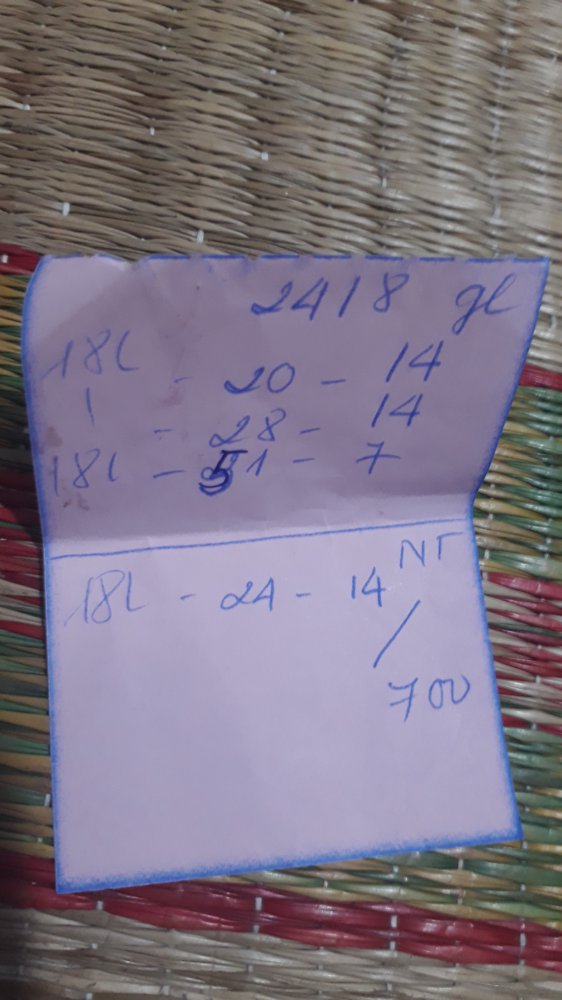 2418 gl
18l - 20 - 14
1 - 28 - 14
18l - 51 - 7
NT
18l - 24 - 14
/
700